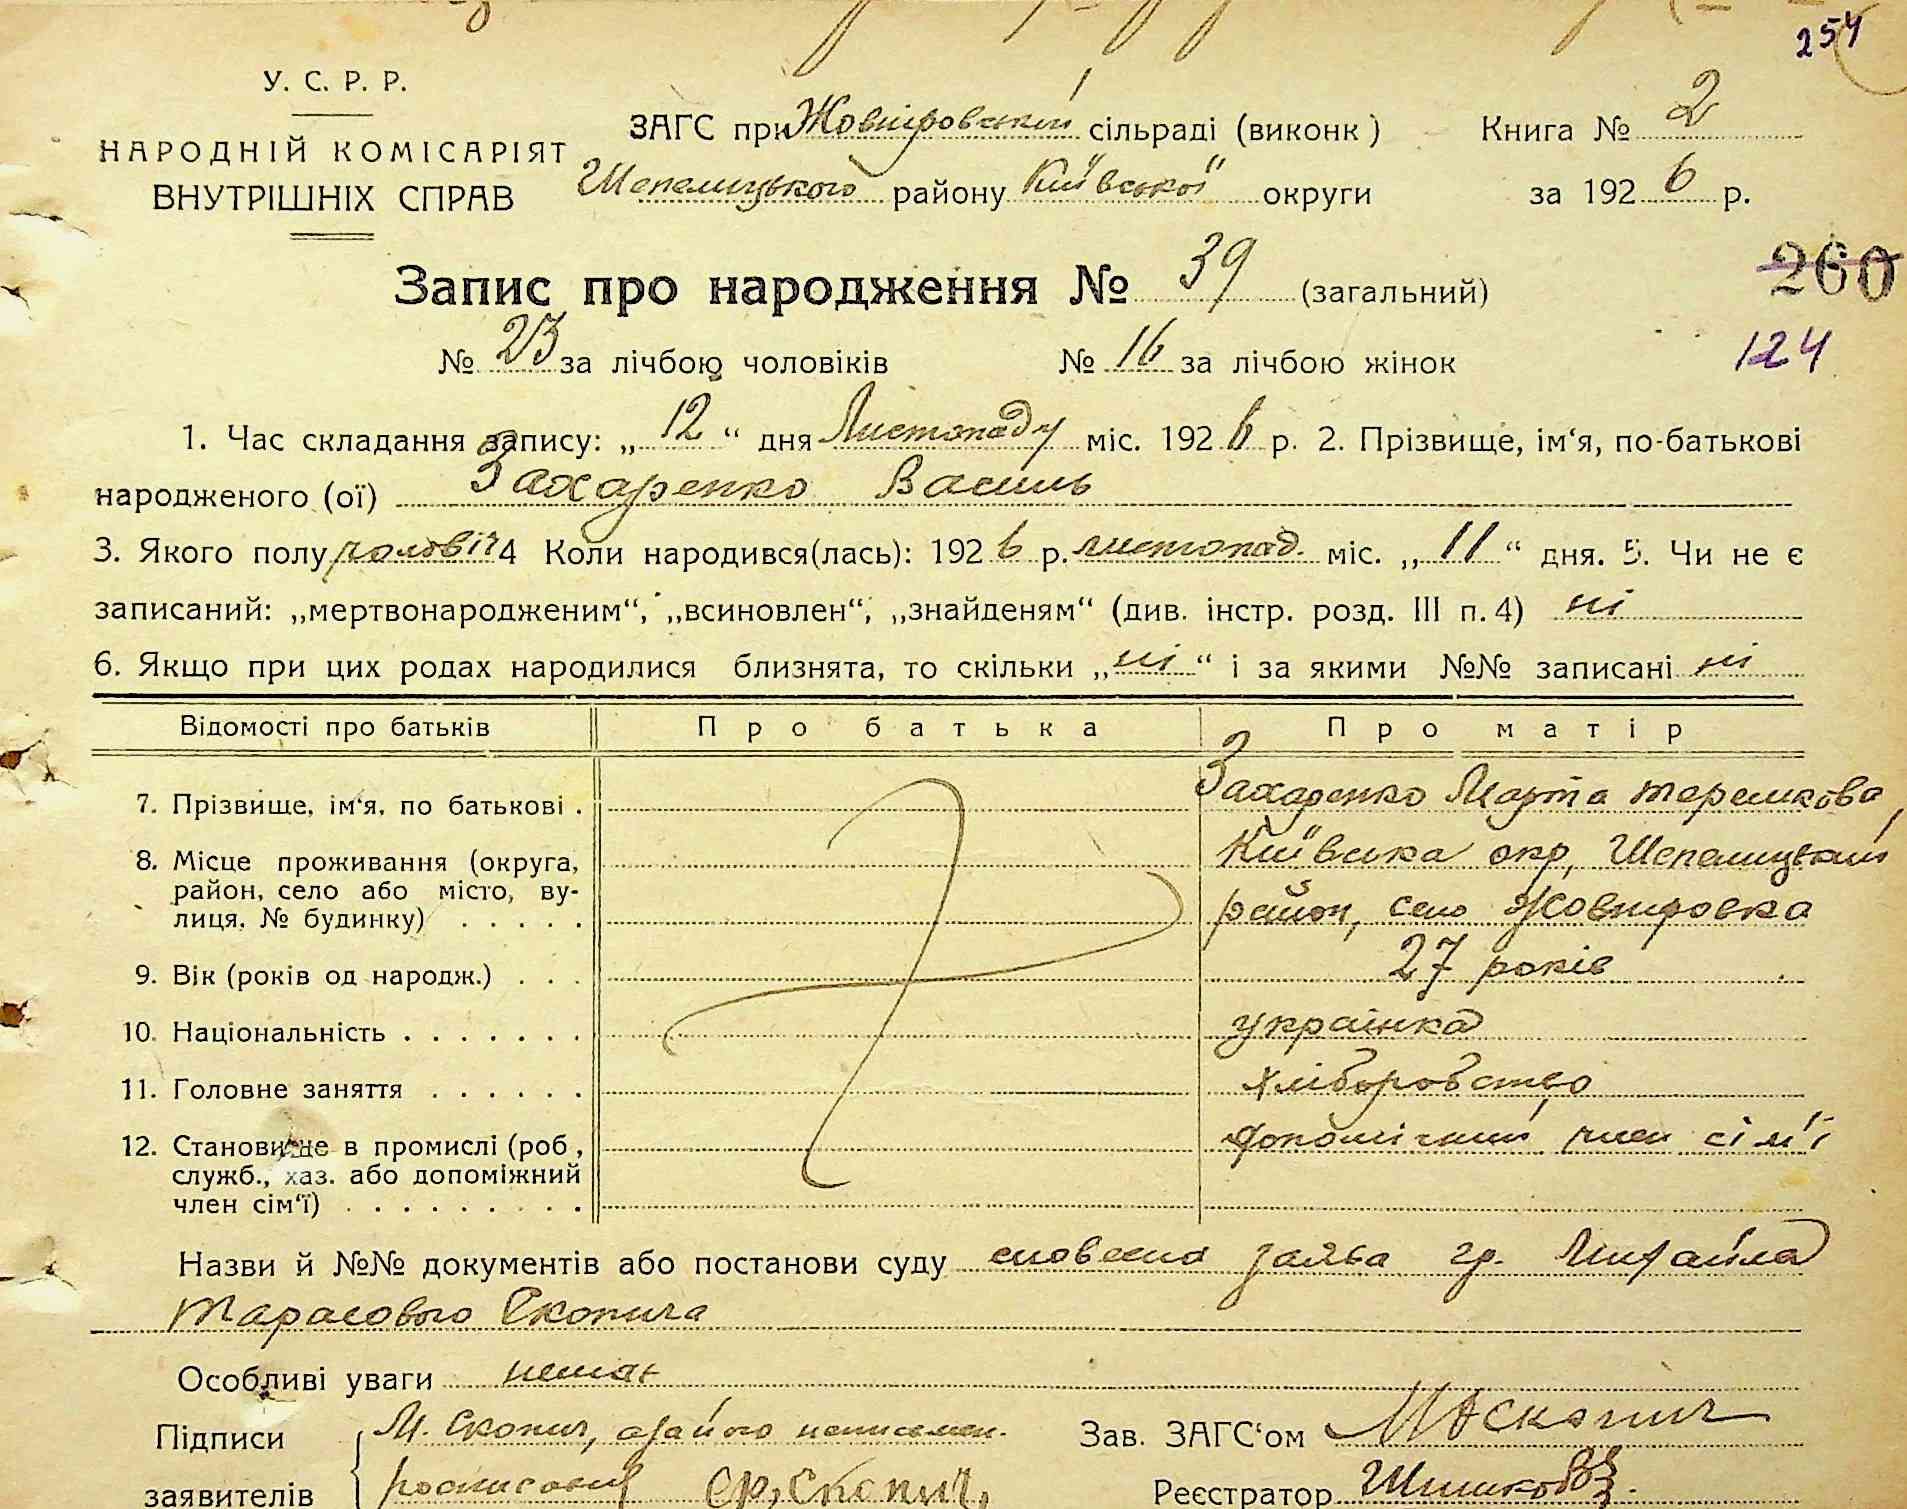 254
У. С. Р. Р.
НАРОДНІЙ КОМІСАРІЯТ
ВНУТРІШНІХ СПРАВ
ЗАГС при Жовніровській сільраді (виконк )
Шепелицького району Київської округи
Книга № 2
за 1926 р.
Запис про народження № 39 (загальний)
260
№ 23 за лічбою чоловіків № 16 за лічбою жінок
124
1. Час складання запису: „ 12 “ дня Листопаду міс. 1926 р. 2. Прізвище, ім‘я, по-батькові
народженого (ої) Захаренко Василь
3. Якого полу чоловіч 4 Коли народився(лась): 1926 р. листопад. міс. „ 11 “ дня. 5. Чи не є
записаний: „мертвонародженим“, „всиновлен“, „знайденям“ (див. інстр. розд. III п. 4) ні
6. Якщо при цих родах народилися близнята, то скільки „ ні “ і за якими №№ записані ні
Відомості про батьків Про батька Про матір
7. Прізвище, ім‘я, по батькові . Захаренко Марта
8. Місце проживання (округа, Київська окр, Шепелицький
район, село або місто, ву- район, село Жовніровка
лиця, № будинку) . . . . .
9. Вік (років од народж.) . . . 27 років
10. Національність . . . . . . . українка
11. Головне заняття . . . . . . хліборобство
12. Становище в промислі (роб , допомічний член сім'ї
служб., хаз. або допоміжний
член сім‘ї) . . . . . . . . .
Назви й №№ документів або постанови суду словесна заява гр. Михайла
Тарасового Скопича
Особливі уваги немає
Підписи М. Скопич, а за його неписьмен.
заявителів росписався Скопич,
Зав. ЗАГС‘ом МСкопич
Реєстратор